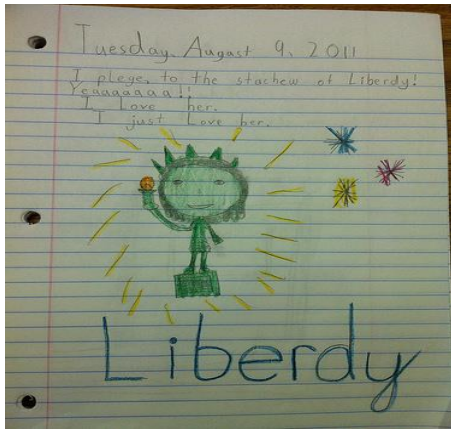 Tuesday, August 9, 2011
I plege, to the stachew of Liberdy!
Yeaaaaaaa!!
I Love her.
I just Love her.
Liberdy